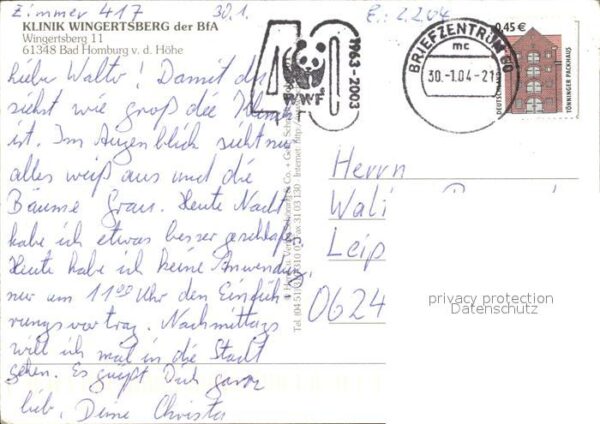 Zimmer 417 30.1. E: 2.2.04
KLINIK WINGERTSBERG der BfA
Wingertsberg 11
61348 Bad Homburg v. d. Höhe
40
WWF
1963-2003
BRIEFZENTRUM 60
mc
30.-1.04-21
0,45 €
TÖNNINGER PACKHAUS
DEUTSCHLAND
Lieber Walto! Damit du
siehst wie groß die Klinik
ist. Im Augenblick sieht nur
alles weiß aus und die
Bäume Grau. Heute Nacht
habe ich etwas besser geschlafen.
Heute habe ich keine Anwendung,
nur um 11 00 Uhr den Einfüh-
rungsvortrag. Nachmittags
will ich mal in die Stadt
gehen. Es grüßt Dich ganz
lieb, Deine Christa
Herrn
Leip
0624
privacy protection
Datenschutz